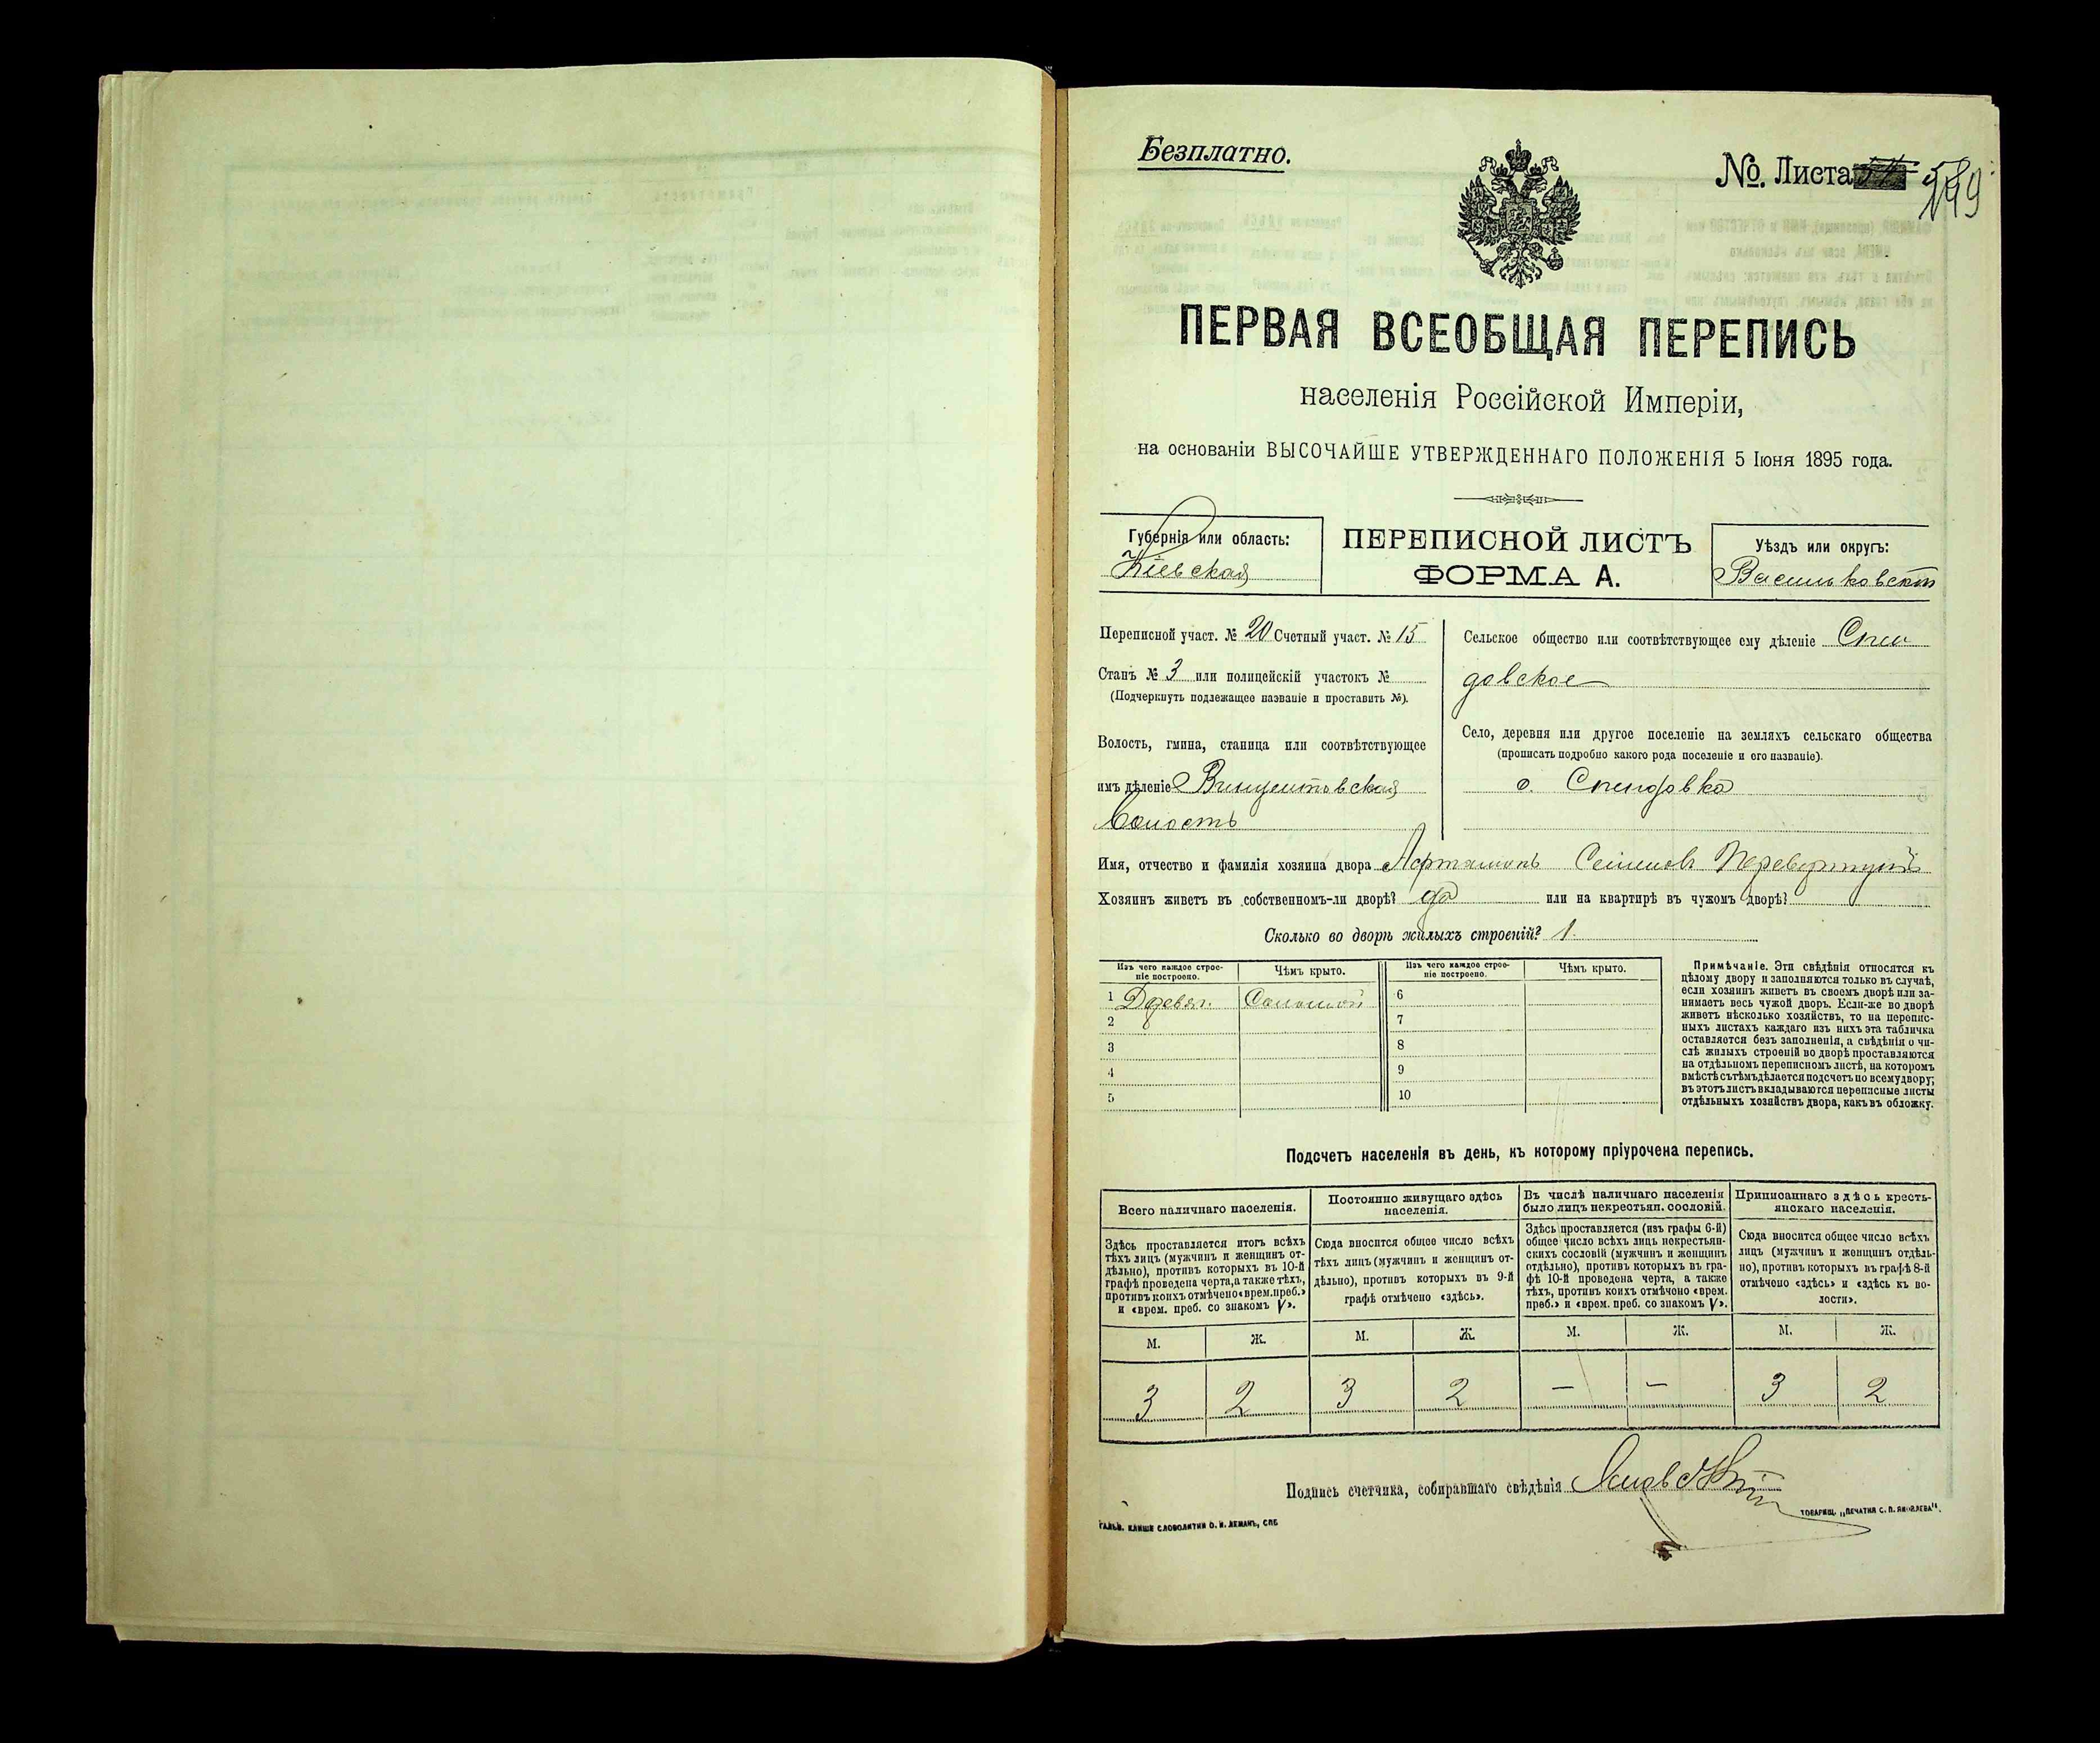 Безплатно.
№. Листа
ПЕРВАЯ ВСЕОБЩАЯ ПЕРЕПИСЬ
населенія Россійской Имперіи,
на основаніи ВЫСОЧАЙШЕ УТВЕРЖДЕННАГО ПОЛОЖЕНІЯ 5 Іюня 1895 года.
Губернія или область:
Кіевская
ПЕРЕПИСНОЙ ЛИСТЪ
ФОРМА А.
Уѣздъ или округъ:
Васильковскій
Переписной участ. № 20 Счетный участ. № 15
Станъ № 3 или полицейскій участокъ №
(Подчеркнуть подлежащее названіе и проставить №).
Волость, гмина, станица или соотвѣтствующее
имъ дѣленіе Винцентовская
Волость
Сельское общество или соотвѣтствующее ему дѣленіе Спен
довское
Село, деревня или другое поселеніе на земляхъ сельскаго общества
(прописать подробно какого рода поселеніе и его названіе).
с. Спендовка
Имя, отчество и фамилія хозяина двора Семеновъ
Хозяинъ живетъ въ собственномъ-ли дворѣ? да или на квартирѣ въ чужомъ дворѣ?
Сколько во дворѣ жилыхъ строеній? 1.
Изъ чего каждое строе-
ніе построено.
Чѣмъ крыто.
Изъ чего каждое строе-
ніе построено.
Чѣмъ крыто.
1 Деревян. Соломой 6
2 7
3 8
4 9
5 10
Примѣчаніе. Эти свѣдѣнія относятся къ
цѣлому двору и заполняются только въ случаѣ,
если хозяинъ живетъ въ своемъ дворѣ или за-
нимаетъ весь чужой дворъ. Если-же во дворѣ
живетъ нѣсколько хозяйствъ, то на перепис-
ныхъ листахъ каждаго изъ нихъ эта табличка
оставляется безъ заполненія, а свѣдѣнія о чи-
слѣ жилыхъ строеній во дворѣ проставляются
на отдѣльномъ переписномъ листѣ, на которомъ
вмѣстѣ съ тѣмъ дѣлается подсчетъ по всему двору;
въ этотъ листъ вкладываются переписные листы
отдѣльныхъ хозяйствъ двора, какъ въ обложку.
Подсчетъ населенія въ день, къ которому пріурочена перепись.
Всего наличнаго населенія.
Здѣсь проставляется итогъ всѣхъ
тѣхъ лицъ (мужчинъ и женщинъ от-
дѣльно), противъ которыхъ въ 10-й
графѣ проведена черта, а также тѣхъ,
противъ коихъ отмѣчено «врем. преб.»
и «врем. преб. со знакомъ V».
Постоянно живущаго здѣсь
населенія.
Сюда вносится общее число всѣхъ
тѣхъ лицъ (мужчинъ и женщинъ от-
дѣльно), противъ которыхъ въ 9-й
графѣ отмѣчено «здѣсь».
Въ числѣ наличнаго населенія
было лицъ некрестьян. сословій.
Здѣсь проставляется (изъ графы 6-й)
общее число всѣхъ лицъ некрестьян-
скихъ сословій (мужчинъ и женщинъ
отдѣльно), противъ которыхъ въ гра-
фѣ 10-й проведена черта, а также
тѣхъ, противъ коихъ отмѣчено «врем.
преб.» и «врем. преб. со знакомъ V».
Приписаннаго здѣсь кресть-
янскаго населенія.
Сюда вносится общее число всѣхъ
лицъ (мужчинъ и женщинъ отдѣль-
но), противъ которыхъ въ графѣ 8-й
отмѣчено «здѣсь» и «здѣсь къ во-
лости».
М. Ж. М. Ж. М. Ж. М. Ж.
3 2 3 2 — — 3 2
Подпись счетчика, собиравшаго свѣдѣнія
ГАЛЬВ. КЛИШЕ СЛОВОЛИТНИ О. И. ЛЕМАНЪ, СПБ
ТОВАРИЩ. „ПЕЧАТНЯ С. П. ЯКОВЛЕВА".